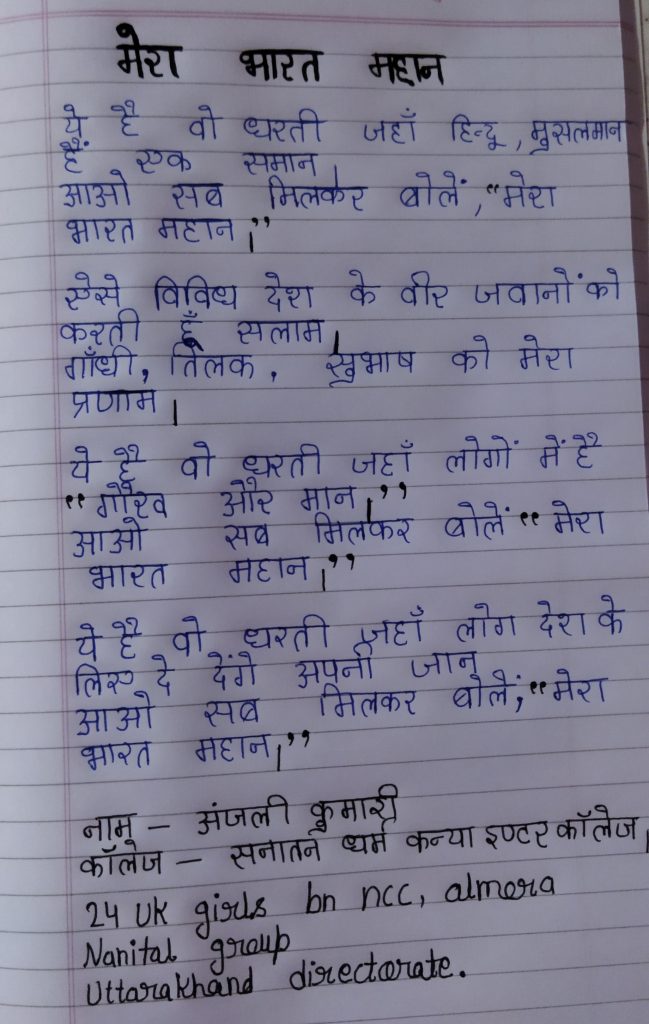 मेरा भारत महान
ये है वो धरती जहाँ हिन्दू, मुसलमान
हैं एक समान,
आओ सब मिलकर बोलें, “मेरा
भारत महान।”
ऐसे विविध देश के वीर जवानों को
करती हूँ सलाम,
गाँधी, तिलक, सुभाष को मेरा
प्रणाम।
ये है वो धरती जहाँ लोगों में है
“गौरव और मान।”
आओ सब मिलकर बोलें “मेरा
भारत महान।”
ये है वो धरती जहाँ लोग देश के
लिए दे देंगे अपनी जान
आओ सब मिलकर बोलें, “मेरा
भारत महान।”
नाम – अंजली कुमारी
कॉलेज – सनातन धर्म कन्या इण्टर कॉलेज,
24 UK girls bn ncc, almora
Nanital group
Uttarakhand directorate.